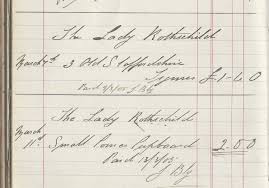 The Lady Rothschild
March 7th 3 Old Staffordshire
Figures £1-6-0
Paid
The Lady Rothschild
March 11th Small Corner Cupboard 2.5.0
Paid